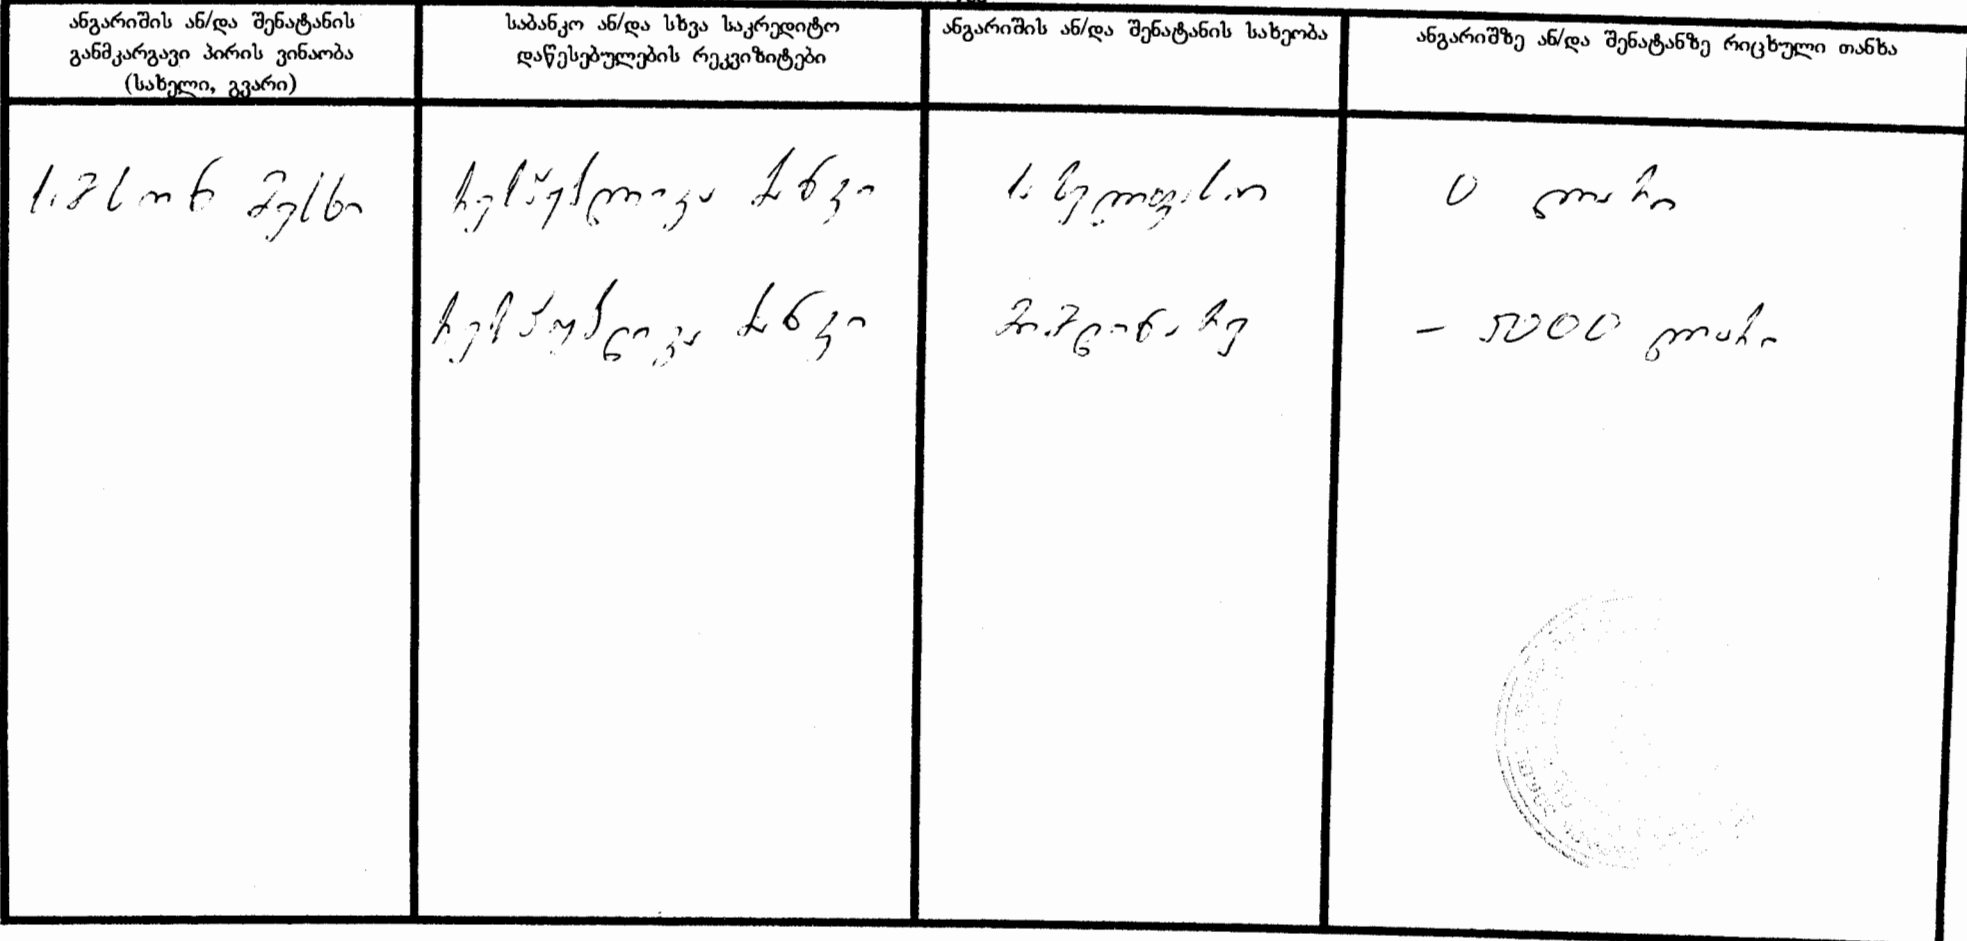 ანგარიშის ან/და შენატანის
განმკარგავი პირის ვინაობა
(სახელი, გვარი)
საბანკო ან/და სხვა საკრედიტო
დაწესებულების რეკვიზიტები
ანგარიშის ან/და შენატანის სახეობა
ანგარიშზე ან/და შენატანზე რიცხული თანხა
სიმსონ მესხი
რესპუბლიკა ბანკი
სახელფასო
0 ლარი
რესპუბლიკა ბანკი
მიმდინარე
- 5000 ლარი